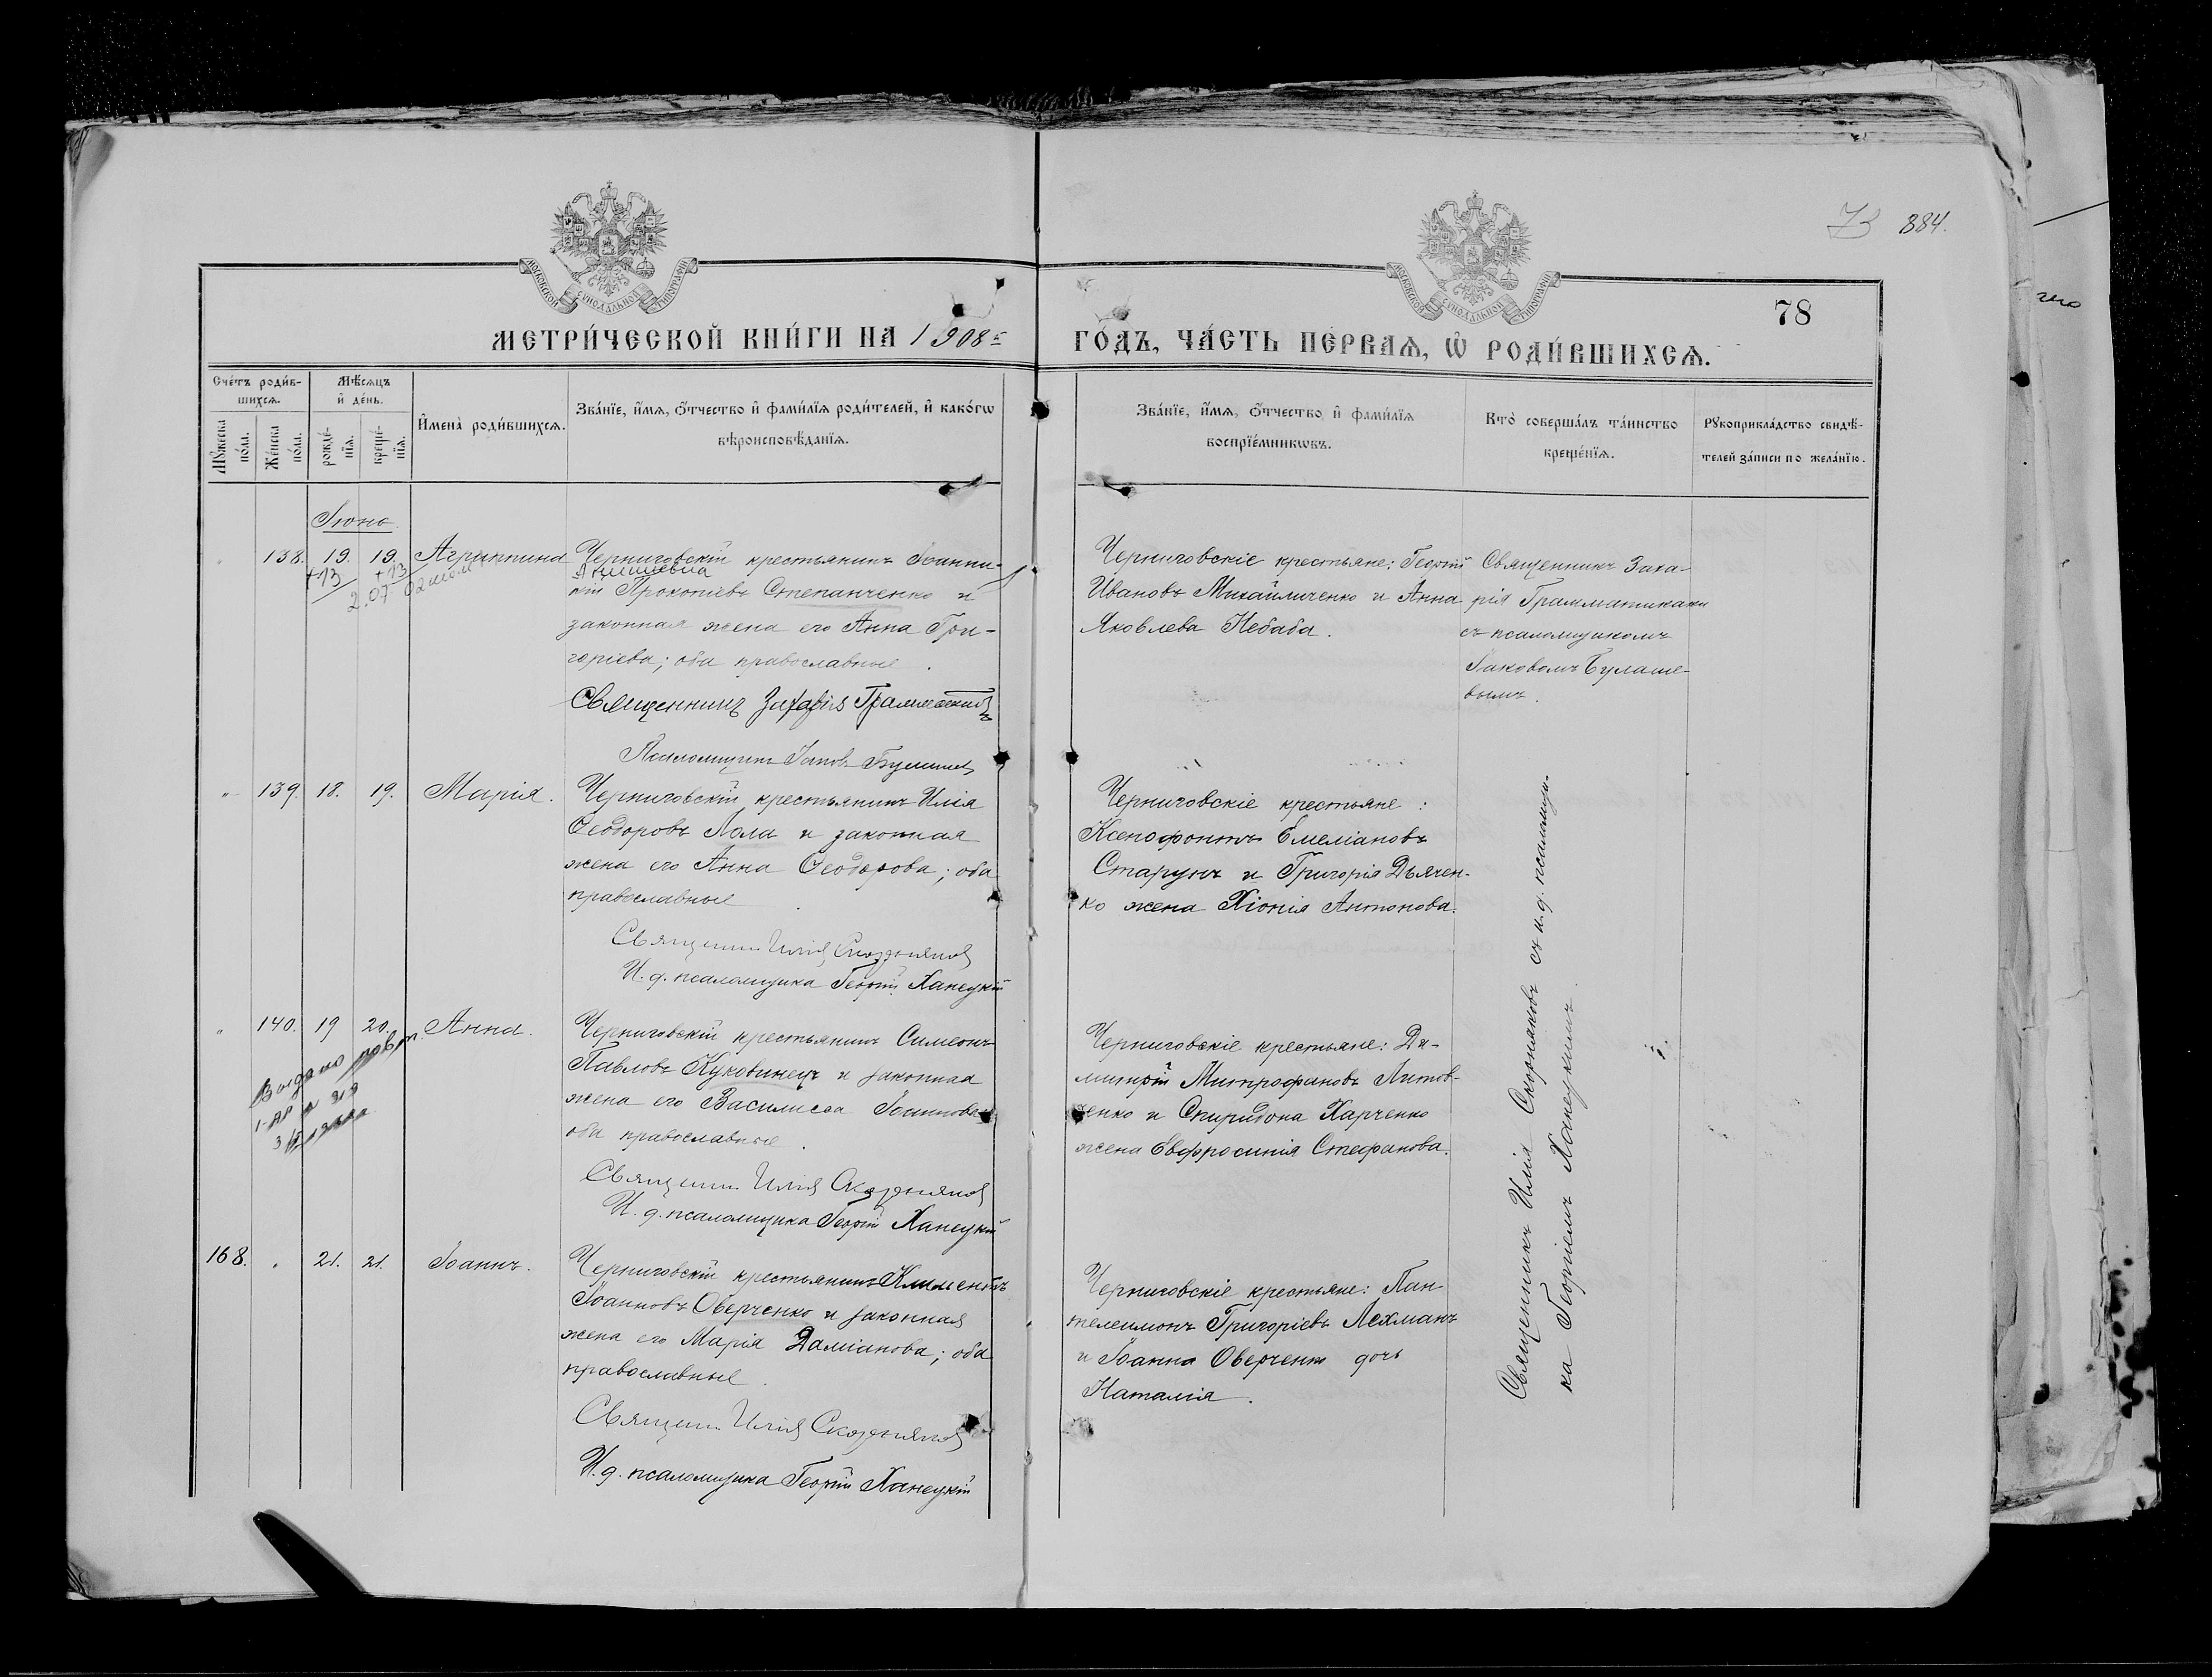 73 884.
МОСКОВСКОЙ СѴНОДАЛЬНОЙ ТИПОГРАФІИ
МОСКОВСКОЙ СѴНОДАЛЬНОЙ ТИПОГРАФІИ
78
МЕТРИ́ЧЕСКОЙ КНИ́ГИ НА 1908 г.
ГО́ДЪ, ЧА́СТЬ ПЕ́РВАѦ, Ѡ҆ РОДИ́ВШИХСѦ.
Сче́тъ роди́в-
шихсѧ.
Мѣ́сѧцъ
и҆ де́нь.
Мꙋ́жеска
по́ла.
Же́нска
по́ла.
рожде́-
нїѧ.
креще́-
нїѧ.
И҆мена̀ роди́вшихсѧ.
Зва́нїе, и҆́мѧ, ѻ҆́тчество и҆ фами́лїѧ роди́телей, и҆ како́гѡ
вѣроисповѣ́данїѧ.
Зва́нїе, и҆́мѧ, ѻ҆́тчество и҆ фами́лїѧ
воспрїе́мникѡвъ.
Кто̀ соверша́лъ та́инство
креще́нїѧ.
Рꙋкоприкла́дство свидѣ́-
телей за́писи по жела́нїю.
Іюнь.
138. 19. 19. Агриппина
+13 +13
2.07
Черниговскій крестьянинъ Іоанни-
кій Прокопіевъ Степанченко и
законная жена его Анна Гри-
горіева; оба православные.
Священникъ Захарія Грамматикаки
Псаломщикъ Іаковъ Булашев
Черниговскіе крестьяне: Георгій
Ивановъ Михайличенко и Анна
Яковлева Небаба.
Священникъ Заха-
рія Грамматикаки
съ псаломщикомъ
Іаковомъ Булаше-
вымъ.
" 139. 18. 19. Марія.
Черниговскій крестьянинъ Илія
Ѳеодоровъ Лола и законная
жена его Анна Ѳеодорова; оба
православные
Священн. Илія Скорняков
И. д. псаломщика Георгій Ханецкій
Черниговскіе крестьяне:
Ксенофонтъ Емеліановъ
Старунъ и Григорія Дьячен-
ко жена Хіонія Антонова.
" 140. 19 20. Анна.
Выдано повт.
Черниговскій крестьянинъ Симеонъ
Павловъ Куковинецъ и законная
жена его Василисса Іоаннова
оба православные.
Священн. Илія Скорняков
И. д. псаломщика Георгій Ханецкій
Черниговскіе крестьяне: Ди-
митрій Митрофановъ Литов-
ченко и Спиридона Харченко
жена Евфросинія Стефанова.
168. " 21. 21. Іоаннъ.
Черниговскій крестьянинъ Климентъ
Іоанновъ Оверченко и законная
жена его Марія Даміанова; оба
православные.
Священн. Илія Скорняков
И. д. псаломщика Георгій Ханецкій
Черниговскіе крестьяне: Пан-
телеимонъ Григоріевъ Лехманъ
и Іоанна Оверченко дочь
Наталія.
Священникъ Илія Скорняковъ съ и. д. псаломщи-
ка Георгіемъ Ханецкимъ.